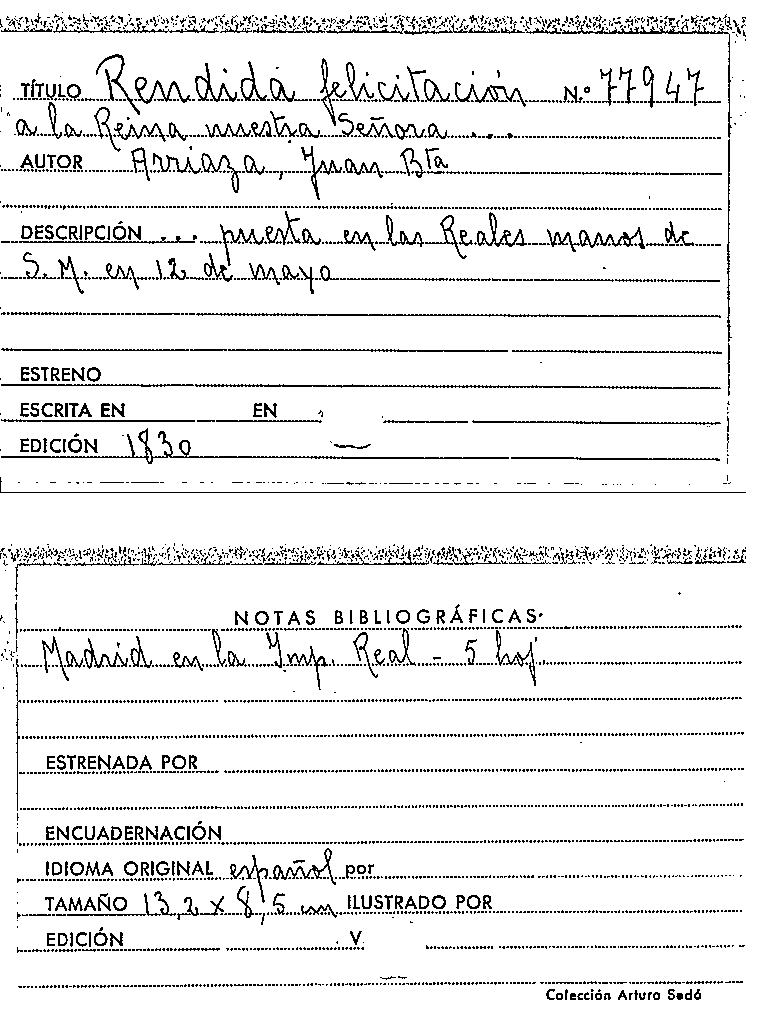 TÍTULO Rendida felicitación N.º 77947
a la Reina nuestra Señora ...
AUTOR Arriaza, Juan Bta
DESCRIPCIÓN ... puesta en las Reales manos de
S. M. en 12 de mayo
ESTRENO
ESCRITA EN EN
EDICIÓN 1830
NOTAS BIBLIOGRÁFICAS
Madrid en la Imp. Real - 5 hoj.
ESTRENADA POR
ENCUADERNACIÓN
IDIOMA ORIGINAL español por
TAMAÑO 13,2 x 8,5 cm ILUSTRADO POR
EDICIÓN V.
Colección Arturo Sedó